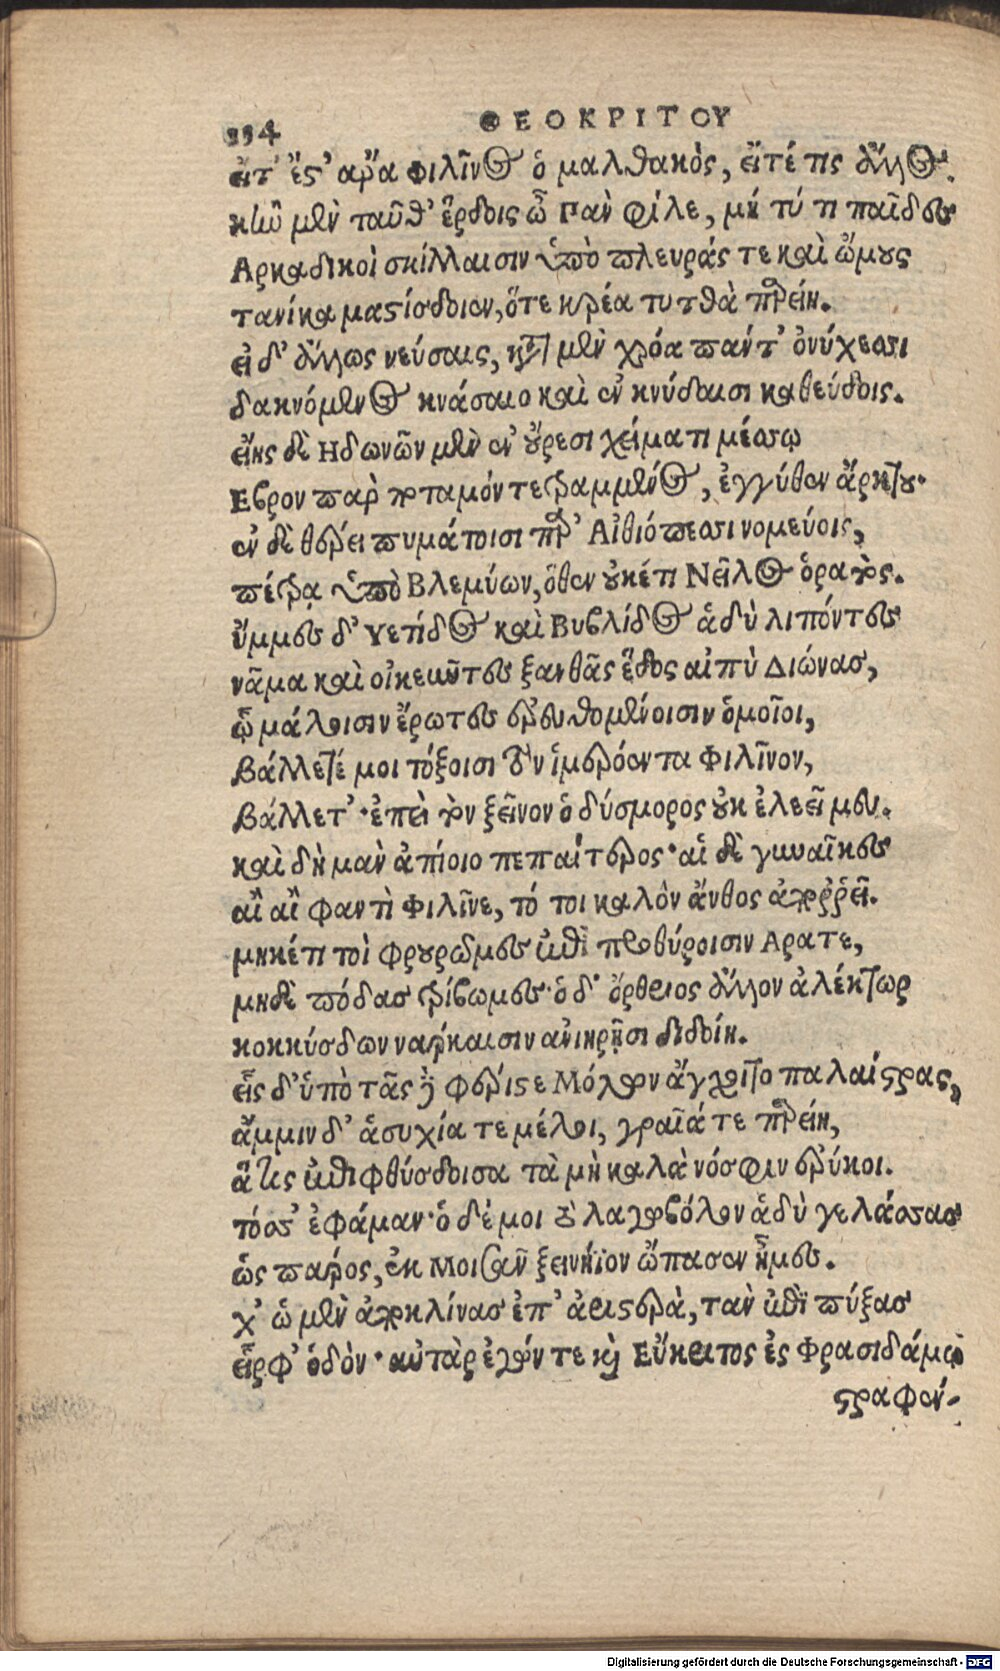 114 ΘΕΟΚΡΙΤΟΥ
εἴτ' ἔς' ἄρα Φιλῖνος ὁ μαλθακὸς, εἴτέ τις ἄλλος.
κἢν μὲν ταῦθ' ἕρδοις ὦ Γὰν φίλε, μή τύ τι παῖδες
Αρκαδικοὶ σκίλλαισιν ὑπὸ πλευράς τε καὶ ὤμους
τανίκα μαςίσδοιεν, ὅτε κρέα τυτθὰ παρείη.
εἰ δ' ἄλλως νεύσαις, κατὰ μὲν χρόα πάντ' ὀνύχεσσι
δακνόμενος κνάσαιο καὶ ἐν κνύδαισι καθεύδοις.
εἴης δὲ Ηδωνῶν μὲν ἐν οὔρεσι χείματι μέσσῳ
Εβρον παρ ποταμόν τετραμμένος, ἐγγύθεν ἄρκτου·
ἐν δὲ θέρει πυμάτοισι παρ' Αἰθιόπεσσι νομεύοις,
πέτρᾳ ὑπὸ Βλεμύων, ὅθεν οὐκέτι Νεῖλος ὁρατός.
ὔμμες δ' Υετίδος καὶ Βυβλίδος ἁδὺ λιπόντες
νᾶμα καὶ οἰκεῦντες ξανθᾶς ἕδος αἰπὺ Διώνας,
ᾦ μάλοισιν ἔρωτες ἐρευθομένοισιν ὁμοῖοι,
βάλλετέ μοι τόξοισι τὸν ἱμερόεντα Φιλῖνον,
βάλλετ'· ἐπεὶ τὸν ξεῖνον ὁ δύσμορος οὐκ ἐλεεῖ μευ.
καὶ δὴ μὰν ἀπίοιο πεπαίτερος· αἱ δὲ γυναῖκες
αἲ αἲ φαντὶ Φιλῖνε, τό τοι καλὸν ἄνθος ἀπορρεῖ.
μηκέτι τοὶ φρουρῶμες ἐπὶ προθύροισιν Αρατε,
μηδὲ πόδας τρίβωμες· ὁ δ' ὄρθριος ἄλλον ἀλέκτωρ
κοκκύσδων νάρκαισιν ἀνιηρῇσι διδοίη.
εἷς δ' ὑπὸ τᾶς γε φέριςε Μόλων ἄγχοιτο παλαίςρας,
ἄμμιν δ' ἁσυχία τε μέλοι, γραῖά τε παρείη,
ἅτις ἐπιφθύσδοισα τὰ μὴ καλὰ νόσφιν ἐρύκοι.
τόσσ' ἐφάμαν· ὁ δέ μοι τὸ λαγωβόλον ἁδὺ γελάσσας
ὡς πάρος, ἐκ Μοισᾶν ξεινήϊον ὤπασεν ἦμες.
χ' ὡ μὲν ἀποκλίνας ἐπ' ἀριςερὰ, τὰν ἐπὶ πύξας
εἷρφ' ὁδόν· αὐτὰρ ἐγών τε καὶ Εὔκριτος ἐς Φρασιδάμω
ςραφέν-